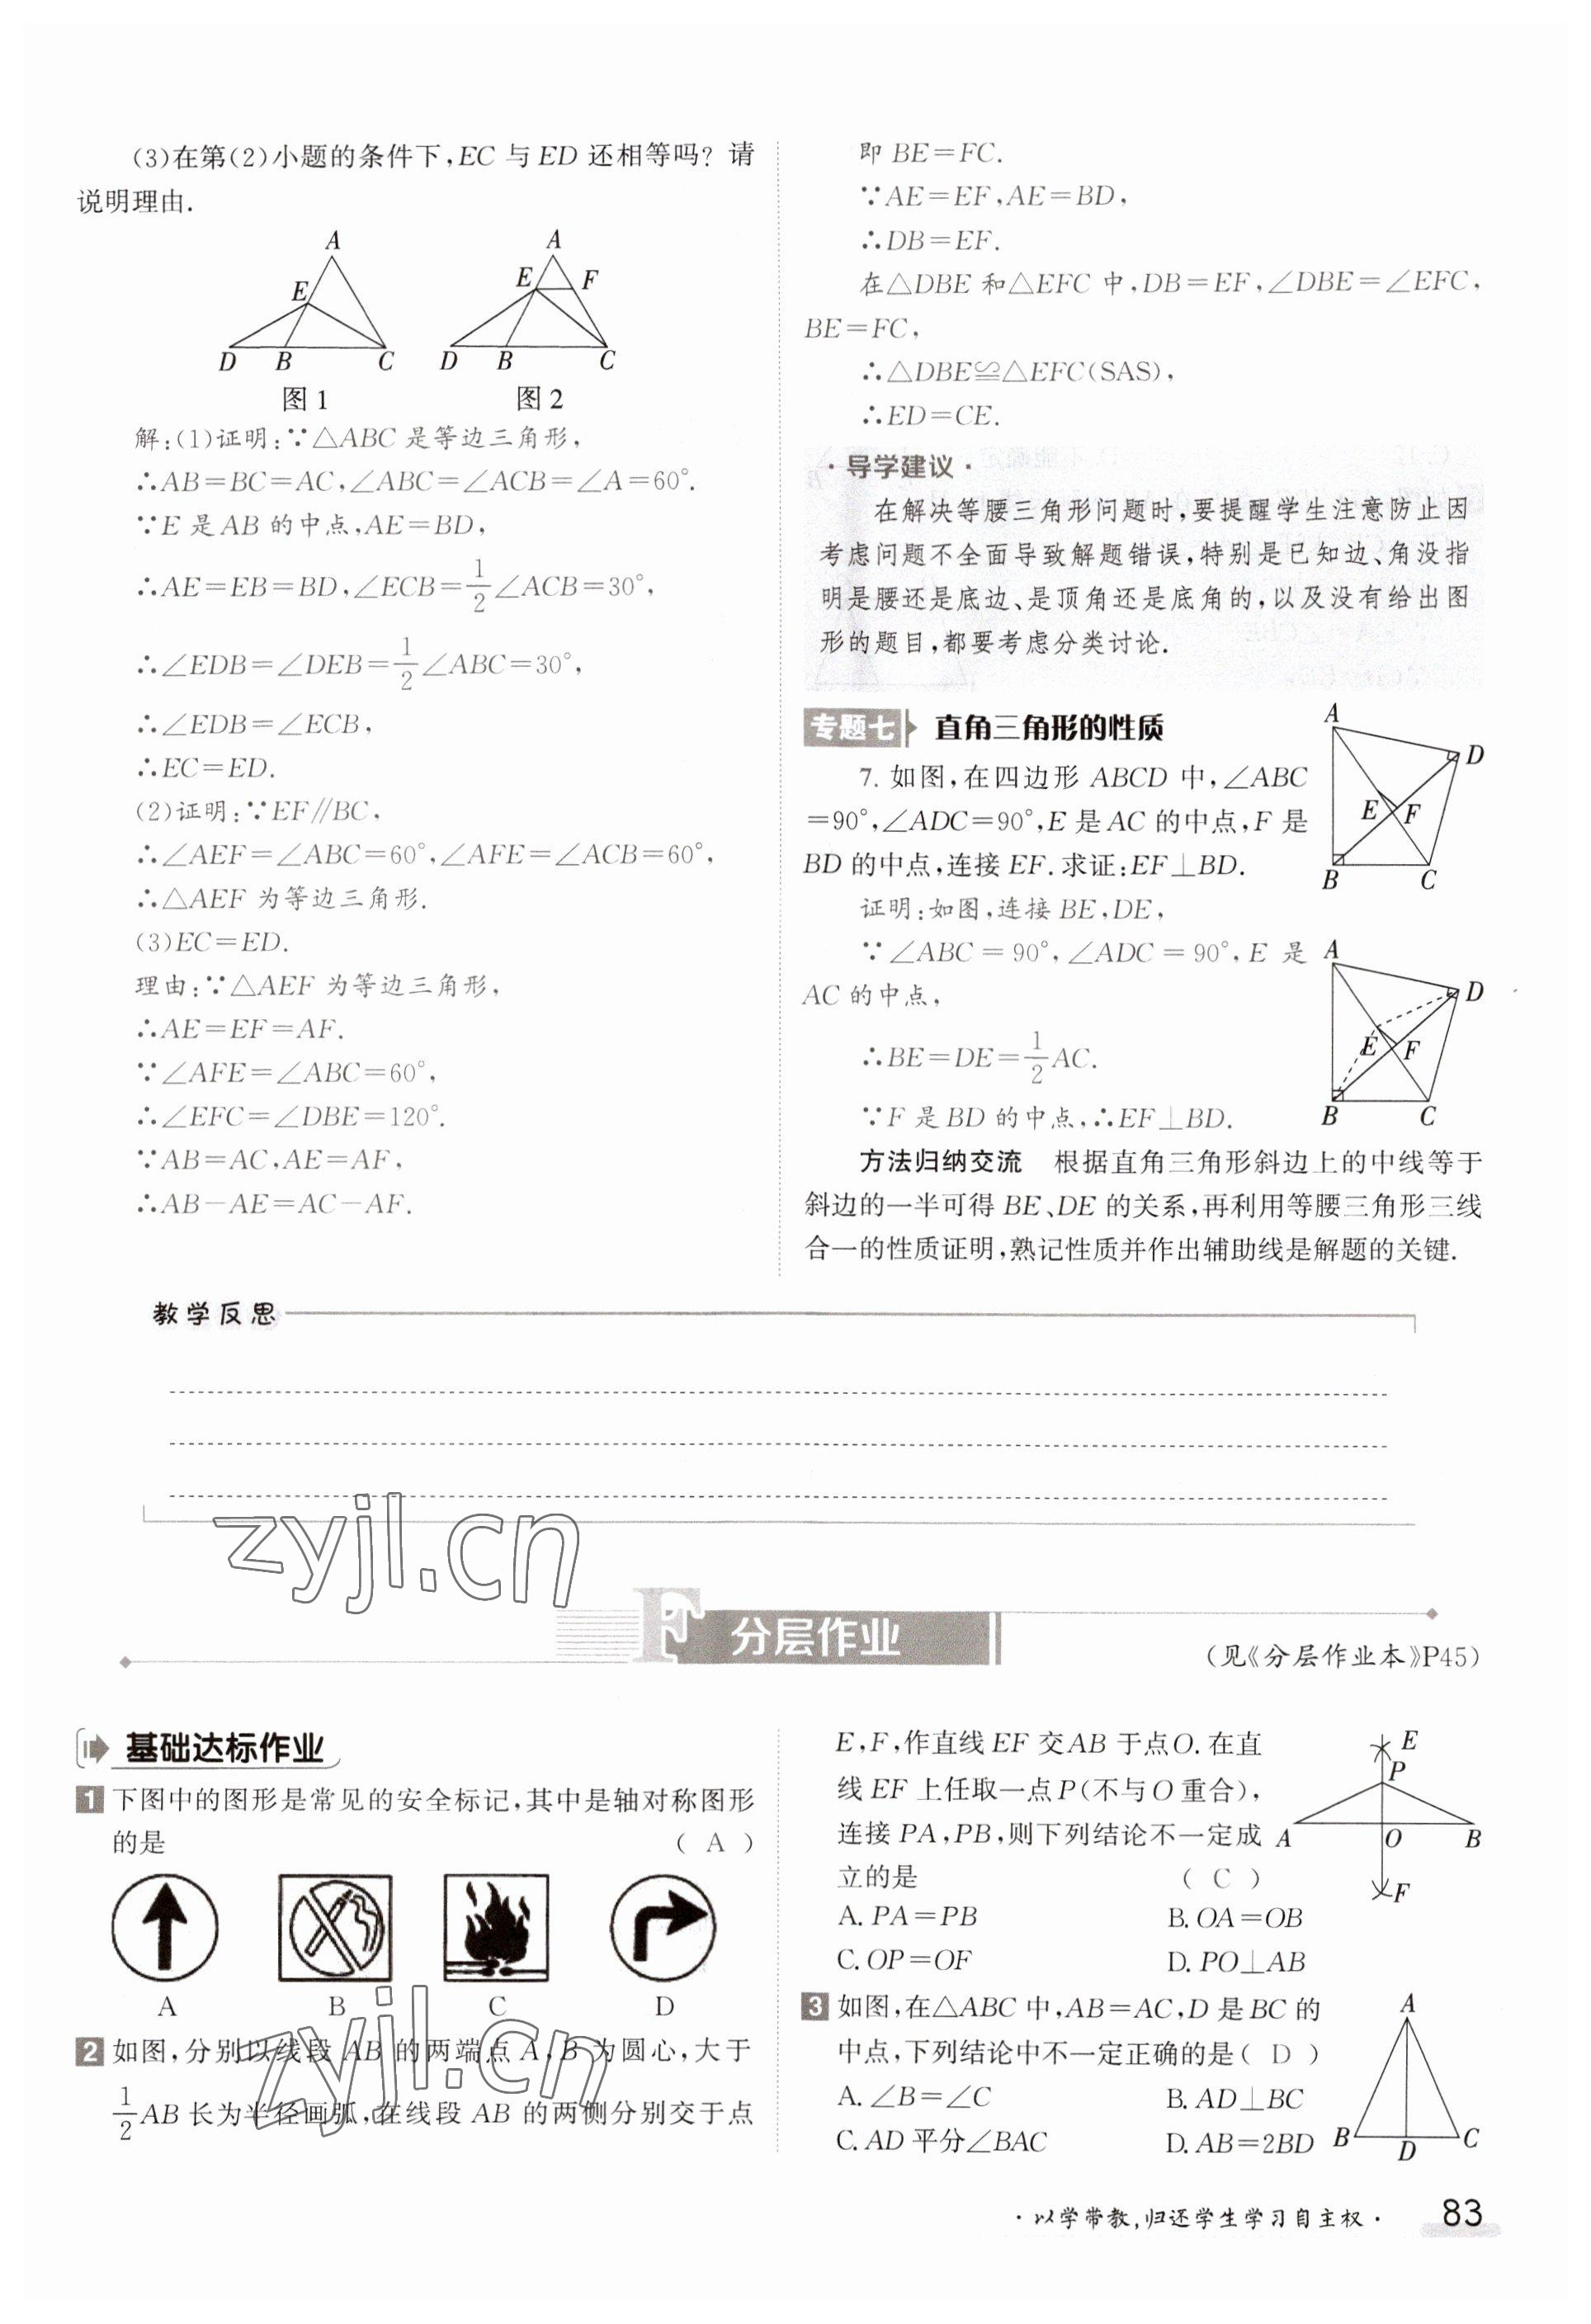 (3)在第(2)小题的条件下,EC 与 ED 还相等吗? 请
说明理由.
A
E
D
B
C
图1
A
E
F
D
B
C
图2
解:(1)证明:∵△ABC 是等边三角形,
∴AB=BC=AC,∠ABC=∠ACB=∠A=60°.
∵E 是 AB 的中点,AE=BD,
∴AE=EB=BD,∠ECB=1/2∠ACB=30°,
∴∠EDB=∠DEB=1/2∠ABC=30°,
∴∠EDB=∠ECB,
∴EC=ED.
(2)证明:∵EF∥BC,
∴∠AEF=∠ABC=60°,∠AFE=∠ACB=60°,
∴△AEF 为等边三角形.
(3)EC=ED.
理由:∵△AEF 为等边三角形,
∴AE=EF=AF.
∵∠AFE=∠ABC=60°,
∴∠EFC=∠DBE=120°.
∵AB=AC,AE=AF,
∴AB-AE=AC-AF.
即 BE=FC.
∵AE=EF,AE=BD,
∴DB=EF.
在△DBE 和△EFC 中,DB=EF,∠DBE=∠EFC,
BE=FC,
∴△DBE≌△EFC(SAS),
∴ED=CE.
·导学建议·
在解决等腰三角形问题时,要提醒学生注意防止因
考虑问题不全面导致解题错误,特别是已知边、角没指
明是腰还是底边、是顶角还是底角的,以及没有给出图
形的题目,都要考虑分类讨论.
专题七 直角三角形的性质
7. 如图,在四边形 ABCD 中,∠ABC
=90°,∠ADC=90°,E 是 AC 的中点,F 是
BD 的中点,连接 EF. 求证:EF⊥BD.
A
D
E
F
B
C
证明:如图,连接 BE,DE,
∵∠ABC=90°,∠ADC=90°,E 是
AC 的中点,
∴BE=DE=1/2AC.
∵F 是 BD 的中点,∴EF⊥BD.
A
D
E
F
B
C
方法归纳交流 根据直角三角形斜边上的中线等于
斜边的一半可得 BE、DE 的关系,再利用等腰三角形三线
合一的性质证明,熟记性质并作出辅助线是解题的关键.
教学反思
zyjl.cn
F 分层作业
(见《分层作业本》P45)
基础达标作业
1 下图中的图形是常见的安全标记,其中是轴对称图形
的是 ( A )
A
B
C
D
zyjl.cn
2 如图,分别以线段 AB 的两端点 A,B 为圆心,大于
1/2AB 长为半径画弧,在线段 AB 的两侧分别交于点
E,F,作直线 EF 交 AB 于点 O. 在直
线 EF 上任取一点 P(不与 O 重合),
连接 PA,PB,则下列结论不一定成
立的是 ( C )
E
P
A
O
B
F
A. PA=PB B. OA=OB
C. OP=OF D. PO⊥AB
3 如图,在△ABC 中,AB=AC,D 是 BC 的
中点,下列结论中不一定正确的是( D )
A. ∠B=∠C B. AD⊥BC
C. AD 平分∠BAC D. AB=2BD
A
B
D
C
·以学带教,归还学生学习自主权·
83